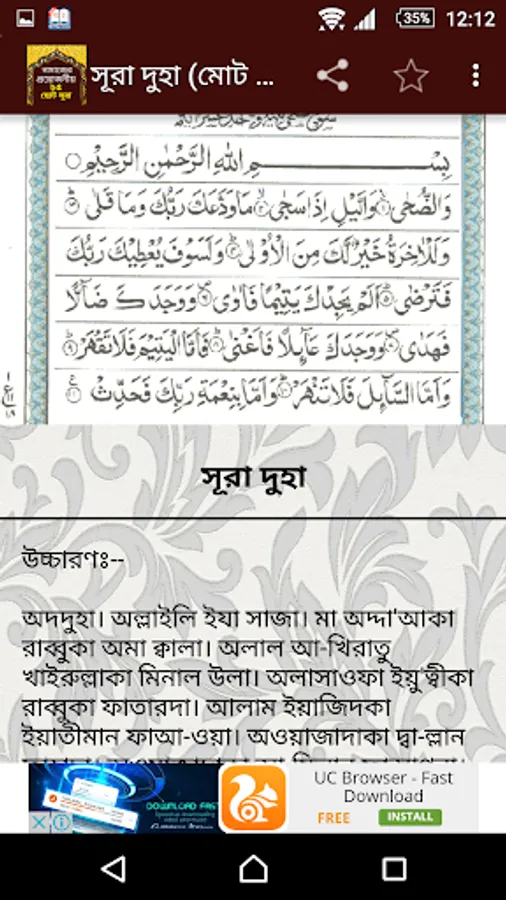 35% 12:12
নামাজের
প্রয়োজনীয়
২৫
ছোট সূরা
সূরা দুহা (মোট ...
بِسْمِ اللهِ الرَّحْمٰنِ الرَّحِيْمِ
وَالضُّحٰى ۙ﴿۱﴾ وَالَّيْلِ اِذَا سَجٰى ۙ﴿۲﴾ مَا وَدَّعَكَ رَبُّكَ وَمَا قَلٰى ﴿۳﴾
وَلَلْاٰخِرَةُ خَيْرٌ لَّكَ مِنَ الْاُوْلٰى ﴿۴﴾ وَلَسَوْفَ يُعْطِيْكَ رَبُّكَ
فَتَرْضٰى ﴿۵﴾ اَلَمْ يَجِدْكَ يَتِيْمًا فَاٰوٰى ﴿۶﴾ وَوَجَدَكَ ضَآلًّا
فَهَدٰى ﴿۷﴾ وَوَجَدَكَ عَآئِلًا فَاَغْنٰى ﴿۸﴾ فَاَمَّا الْيَتِيْمَ فَلَا تَقْهَرْ ﴿۹﴾
وَاَمَّا السَّآئِلَ فَلَا تَنْهَرْ ﴿۱۰﴾ وَاَمَّا بِنِعْمَةِ رَبِّكَ فَحَدِّثْ ﴿۱۱﴾
সূরা দুহা
উচ্চারণঃ--
অদদুহা। অল্লাইলি ইযা সাজা। মা অদ্দা'আকা
রাব্বুকা অমা ক্বালা। অলাল আ-খিরাতু
খাইরুল্লাকা মিনাল উলা। অলাসাওফা ইয়ু'ত্বীকা
রাব্বুকা ফাতারদা। আলাম ইয়াজিদকা
ইয়াতীমান ফাআ-ওয়া। অওয়াজাদাকা দ্বা-ল্লান
DOWNLOAD FAST
UC Browser - Fast
Download
FREE INSTALL